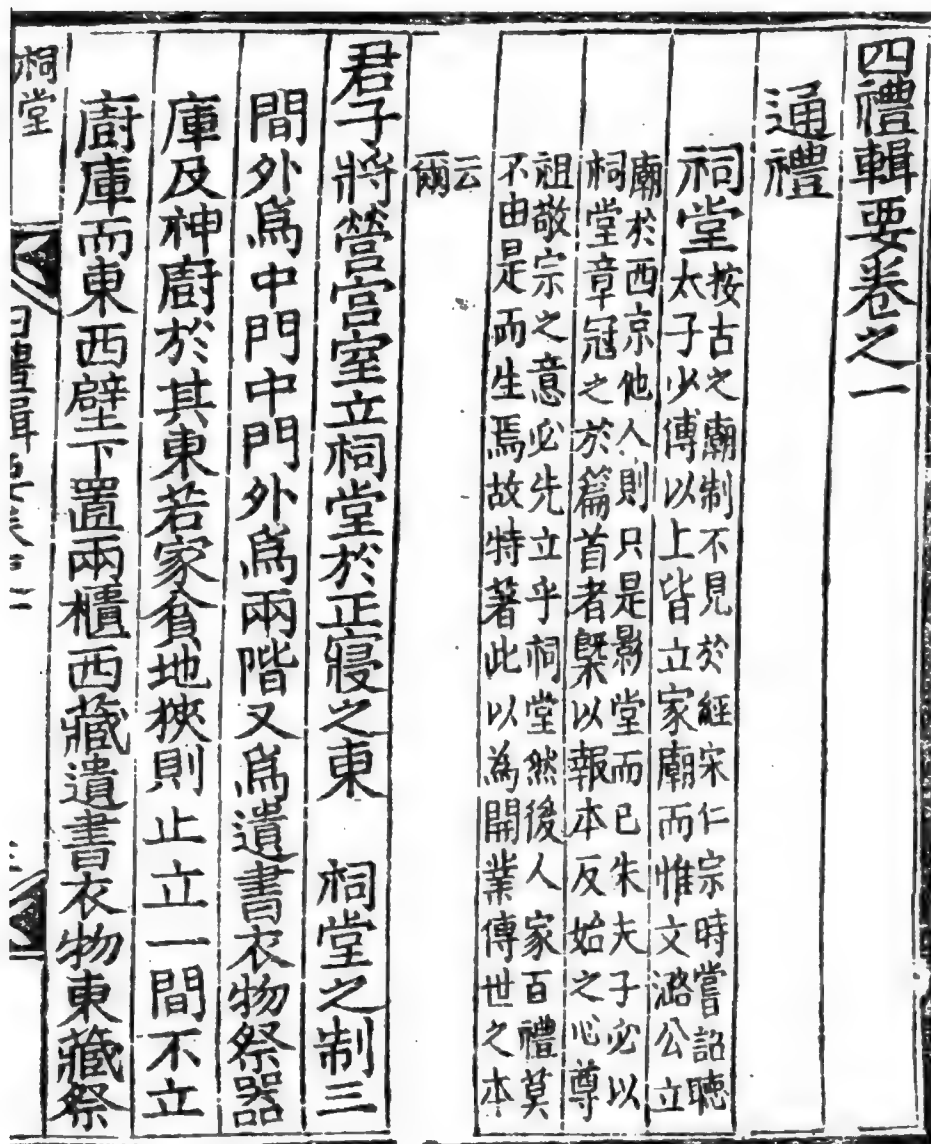 四禮輯要卷之一
通禮
祠堂
按古之廟制不見於經宋仁宗時嘗詔聽
太子少傅以上皆立家廟而惟文潞公立
廟於西京他人則只是影堂而已朱夫子必以
祠堂章冠之於篇首者槩以報本反始之心尊
祖敬宗之意必先立乎祠堂然後人家百禮莫
不由是而生焉故特著此以為開業傳世之本
云
爾
君子將營宮室立祠堂於正寢之東　祠堂之制三
間外爲中門中門外爲兩階又爲遺書衣物祭器
庫及神廚於其東若家貧地狹則止立一間不立
廚庫而東西壁下置兩櫃西藏遺書衣物東藏祭
祠堂
四禮輯要卷之一